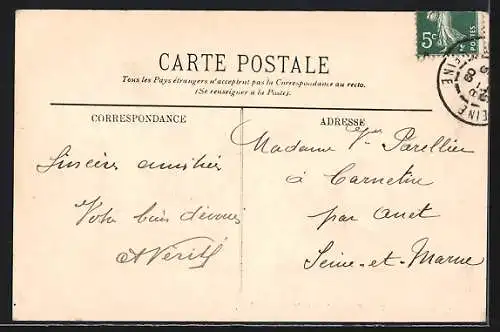 CARTE POSTALE
Tous les Pays étrangers n'acceptent pas la Correspondance au recto.
(Se renseigner à la Poste).
CORRESPONDANCE
Sincères amitiés
Votre bien dévoué
ADRESSE
Madame Vve Parellier
à Carnetin
par Anet
Seine-et-Marne
5c
POSTES
SEINE